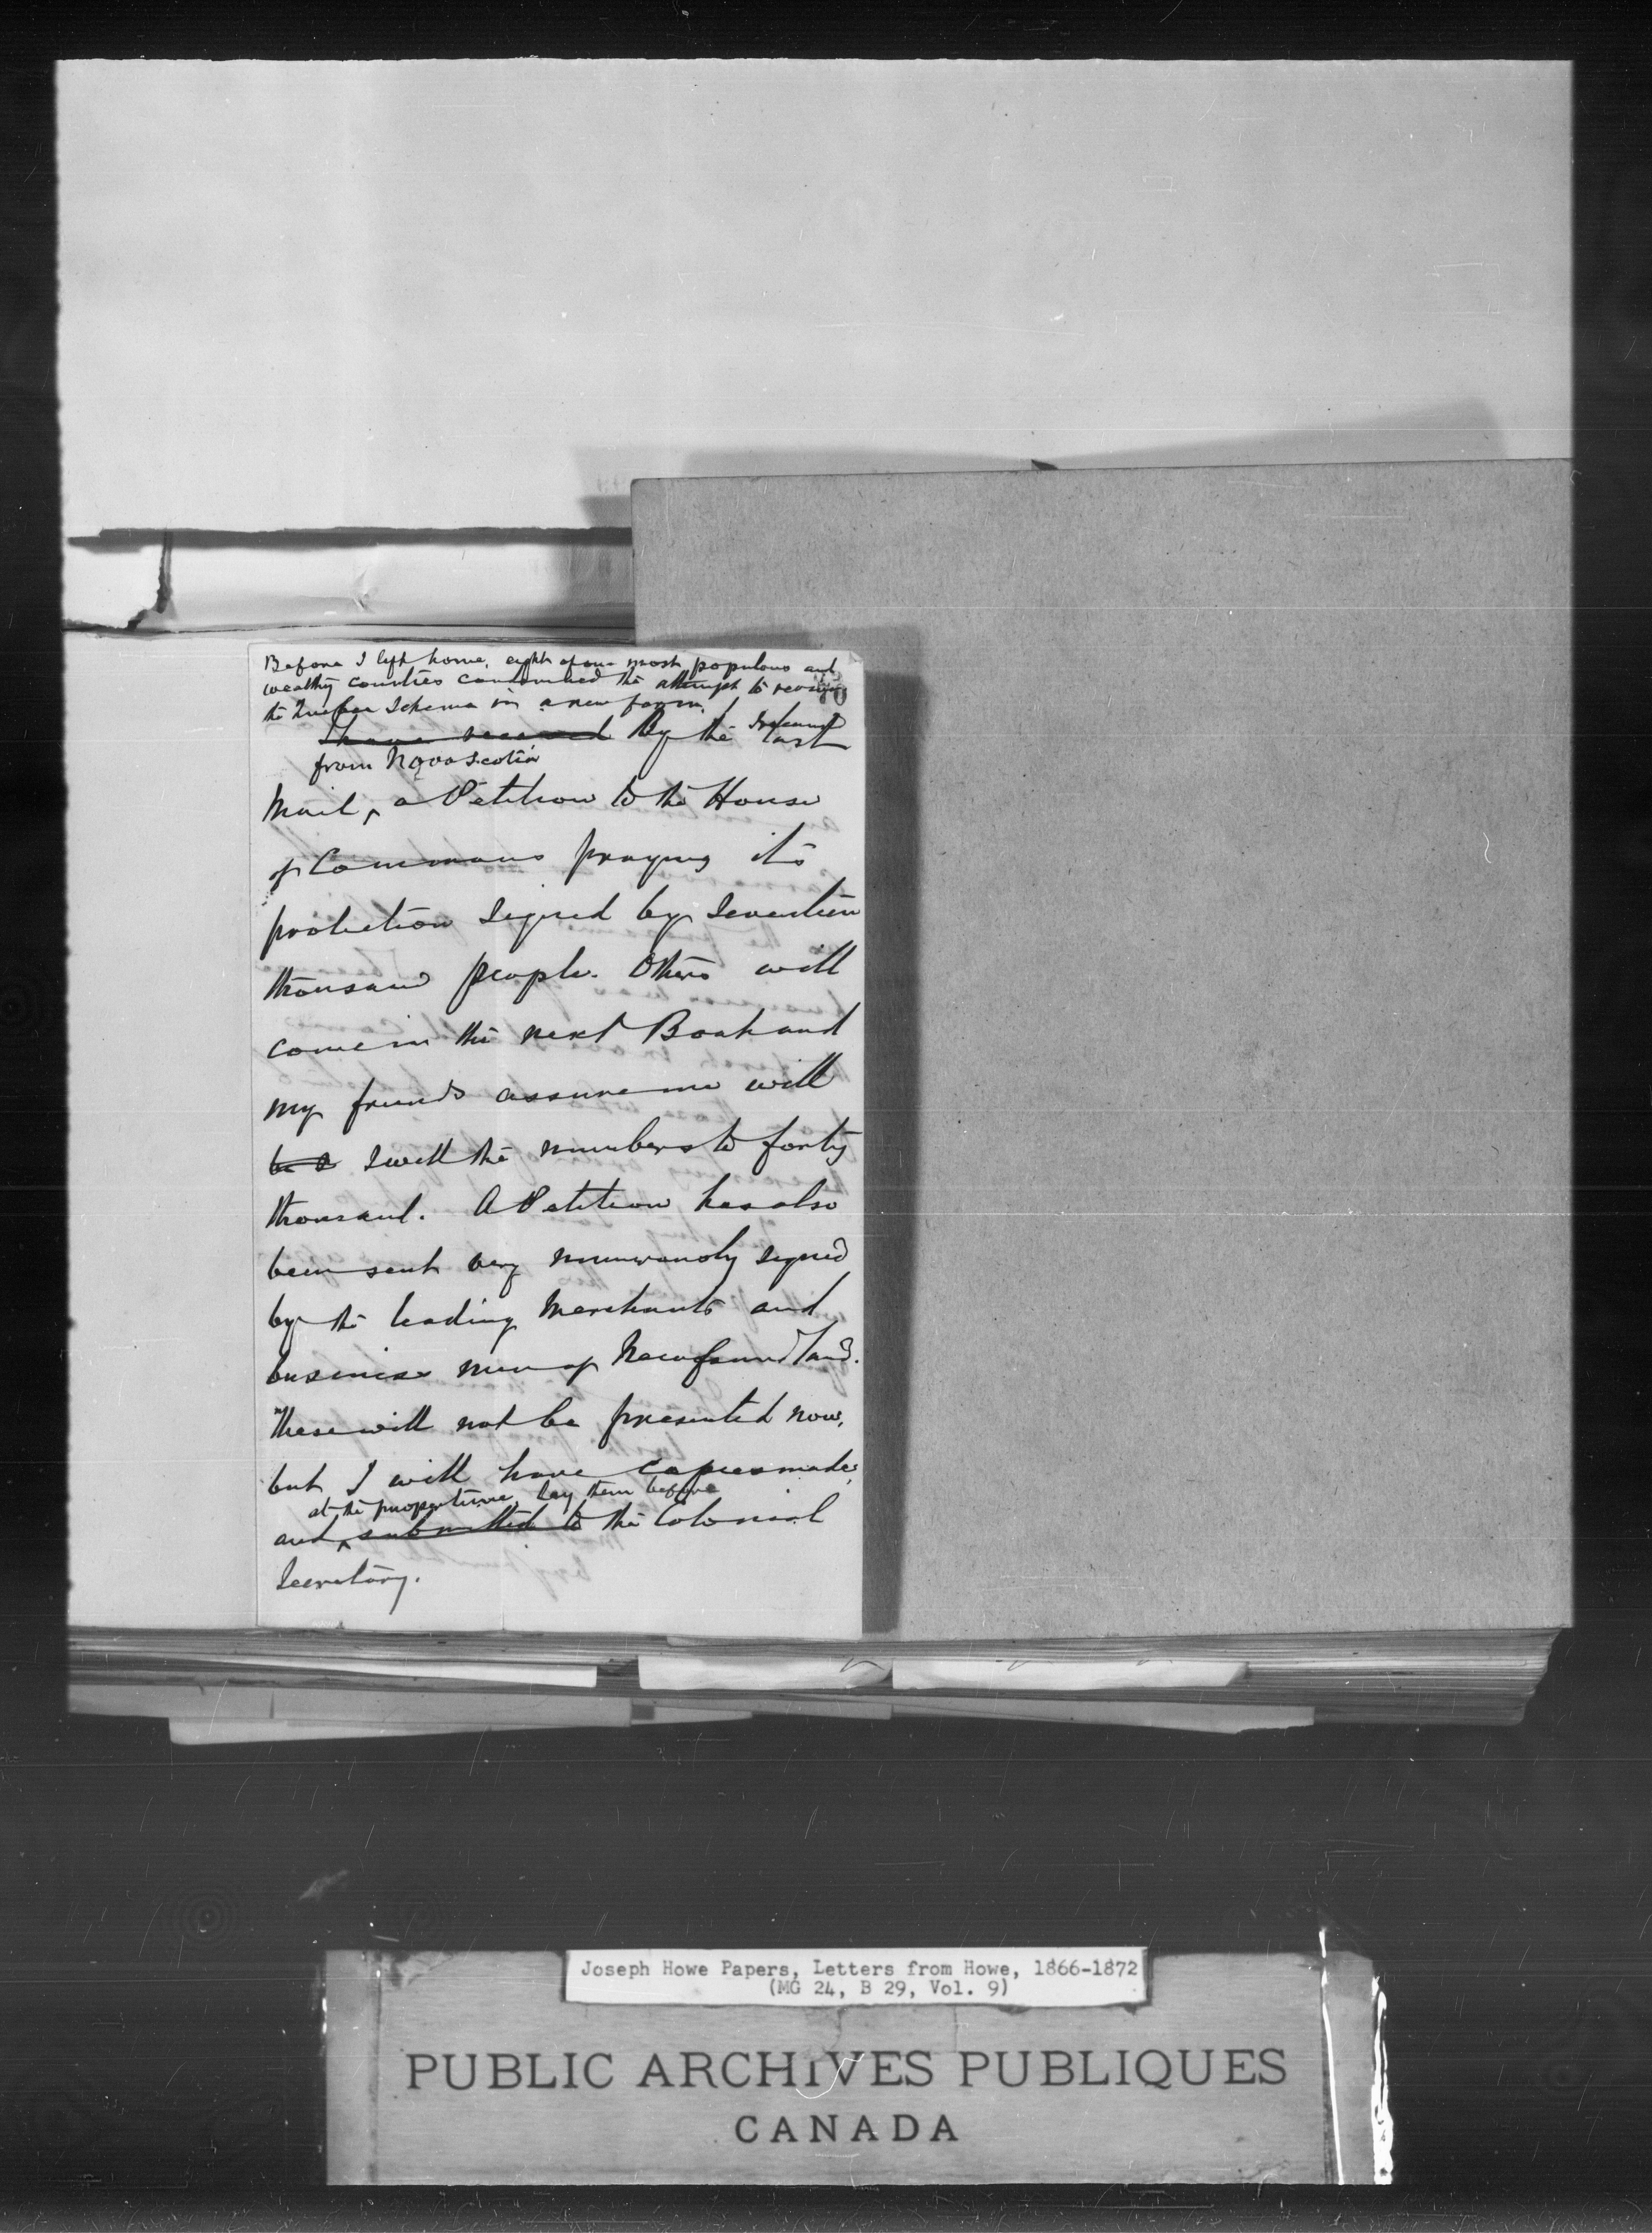 Before I left home, eight of our most populous and
wealthy counties condemned the attempt to revive
the Quebec Scheme in a new form.
I have received By the last
I received
from Nova Scotia
Mail, a Petition to the House
of Commons praying its
protection signed by seventeen
thousand people. Others will
come in the next Boat and
my friends assure me will
be swell the numbers to forty
thousand. A Petition has also
been sent very numerously signed
by the leading Merchants and
business men of Newfoundland.
These will not be presented now,
but I will have copies made,
at the proper time, lay them before
and submitted to the Colonial
Secretary.
Joseph Howe Papers, Letters from Howe, 1866-1872
(MG 24, B 29, Vol. 9)
PUBLIC ARCHIVES PUBLIQUES
CANADA